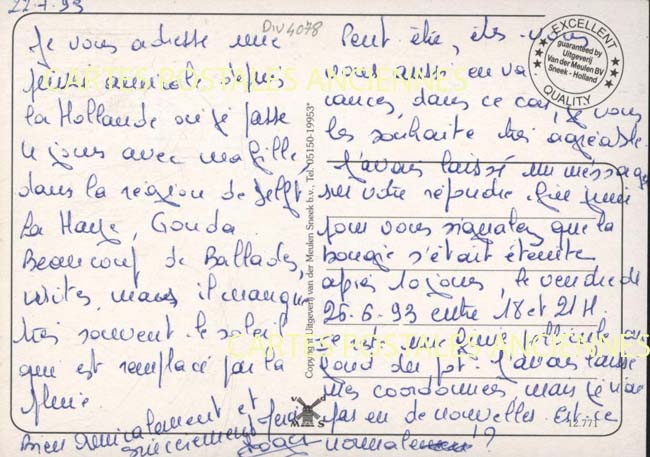 22.7.93
DIV4078
Je vous adresse une
pensée amicale depuis
la Hollande où je passe
4 jours avec ma fille
dans la région de Delft
La Haye, Gouda.
Beaucoup de Ballades,
visites, mais il manque
très souvent le soleil
que est remplacé par la
pluie
Bien amicalement et
sincèrement
Peut être, êtes-vous
vous aussi en va
cances, dans ce cas, je vous
les souhaite très agréable
J'avais laissé un message
sur votre répondeur
pour vous signaler que la
bougie s'était éteinte
après 10 jours, le vendredi
25.6.93 entre 18 et 21H.
au
fond du pot. J'avais laissé
mes coordonnées, mais je n'ai
pas eu de nouvelles. Est-ce
normal ?
EXCELLENT
guaranteed by
Uitgeverij
Van der Meulen BV
Sneek - Holland
QUALITY
Copyright Uitgeverij van der Meulen Sneek b.v., Tel. 05150-19953*
12.771
CARTES POSTALES ANCIENNES
CARTES POSTALES ANCIENNES